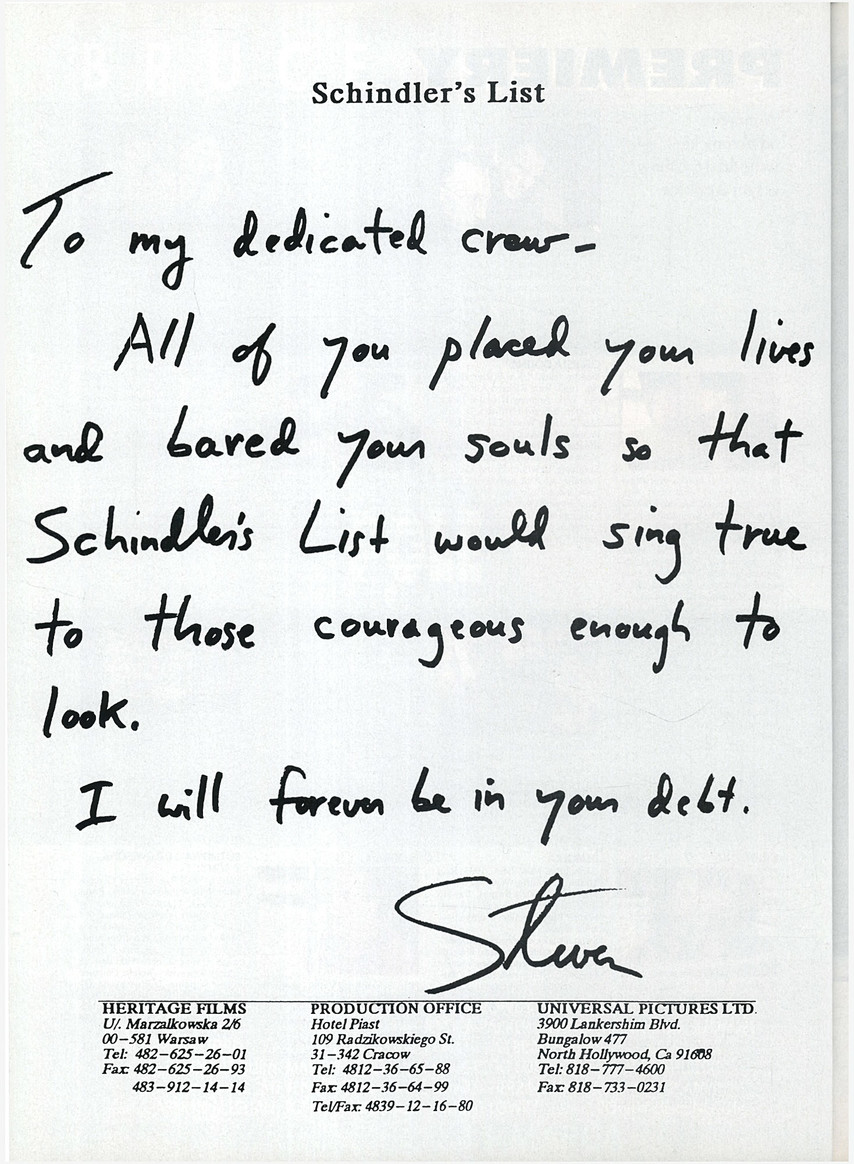 Schindler's List
To my dedicated crew-
All of you placed your lives
and bared your souls so that
Schindler's List would sing true
to those courageous enough to
look.
I will forever be in your debt.
Steven
HERITAGE FILMS
U/. Marzalkowska 2/6
00-581 Warsaw
Tel: 482-625-26-01
Fax: 482-625-26-93
483-912-14-14
PRODUCTION OFFICE
Hotel Piast
109 Radzikowskiego St.
31-342 Cracow
Tel: 4812-36-65-88
Fax: 4812-36-64-99
Tel/Fax: 4839-12-16-80
UNIVERSAL PICTURES LTD.
3900 Lankershim Blvd.
Bungalow 477
North Hollywood, Ca 91608
Tel: 818-777-4600
Fax: 818-733-0231